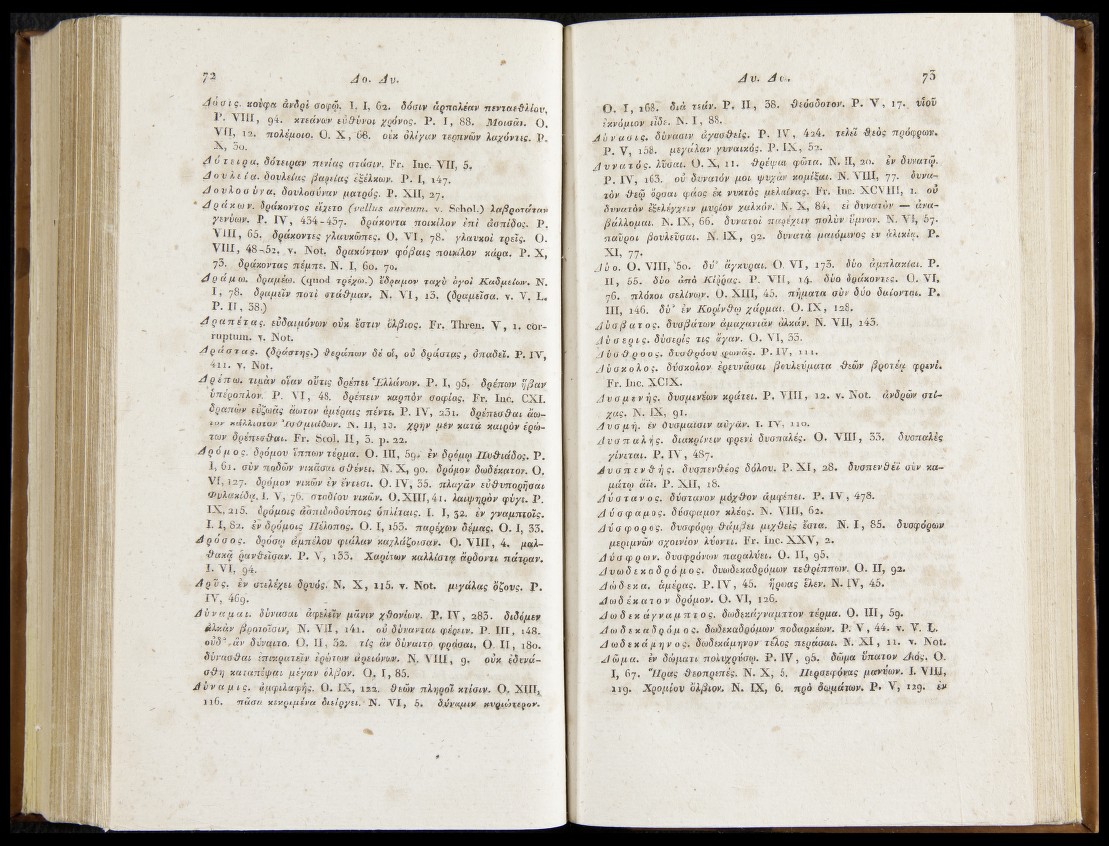 72 Δο. Δυ.
Δόσις. κούφα ἀνδρὶ σοφῷ. I. I, 62. δόσιν ἁρπαλέαν πενταεθλίου.
P. VIII, 94. κτεάνων εὐθύνοι χρόνος. P. I, 88. Μοισᾶν. O.
VII, 12. πολέμοιο. O. X, 68. οὐκ ὀλίγαν τερπνῶν λαχόντες. P.
X, 30.
Δότειρα. δότειραν πενίας στάσιν. Fr. Inc. VII, 5.
Δουλεία. δουλείας βαρείας ἐξέλκων. P. I, 147.
Δουλοσύνα. δουλοσύναν ματρός. P. XII, 27.
Δράκων. δράκοντος εἴχετο (vellus aureum. v. Schol.) λαβροτάταν
γενύων. P. IV, 434-437. δράκοντα ποικίλον ἐπὶ ἀσπίδος. P.
VIII, 65. δράκοντες γλαυκῶπες. O. VI, 78. γλαυκοὶ τρεῖς. O.
VIII, 48-52. v. Not. δρακόντων φόβαις ποικίλον κάρα. P. X,
73. δράκοντας πέμπε. N. I, 60. 70.
Δράμω. δραμέω. (quod τρέχω.) ἔδραμον ταχὺ ἀγοὶ Καδμείων. N.
I, 78. δραμεῖν ποτὶ στάθμαν. N. VI, 13. (δραμεῖσα. v. V. L.
P. II, 38.)
Δραπέτας. εὐδαιμόνων οὐκ ἔστιν ὄλβιος. Fr. Thren. V, 1. cor-
ruptum. v. Not.
Δράστας. (δράστης.) θεράπων δέ οἱ, οὐ δράστας, ὀπαδεῖ. P. IV,
411. v. Not.
Δρέπω. τιμὰν οἵαν οὔτις δρέπει Ἑλλάνων. P. I, 95. δρέπων ἥβαν
ὑπέροπλον. P. VI, 48. δρέπειν καρπὸν σοφίας. Fr. Inc. CXI.
δραπὼν εὐζωᾶς ἄωτον ἁμέραις πέντε. P. IV, 231. δρέπεσθαι ἄω-
τον κάλλιστον Ἰσθμιάδων. N. II, 13. χρῆν μὲν κατὰ καιρὸν ἐρώ-
των δρέπεσθαι. Fr. Scol. II, 3. p. 22.
Δρόμος. δρόμου ἵππων τέρμα. O. III, 59. ἐν δρόμῳ Πυθιάδος. P.
I, 61. σὺν ποδῶν νικᾶσαι σθένει. N. X, 90. δρόμον δωδέκατον. O.
VI, 127. δρόμον νικῶν ἐν ἔντεσι. O. IV, 35. πλαγᾶν εὐθυπορῆσαι
Φυλακίδᾳ. I. V, 76. σταδίου νικῶν. O. XIII, 41. λαιψηρὸν φύγε. P.
IX, 215. δρόμοις ἀσπιδοδούποις ὁπλίταις. I. I, 32. ἐν γναμπτοῖς.
I. I, 82. ἐν δρόμοις Πέλοπος. O. I, 153. παρέχων δέμας. O. I, 33.
Δρόσος. δρόσῳ ἀμπέλου φιάλαν καχλάζοισαν. O. VIII, 4. μαλ-
θακᾷ ῥανθεῖσαν. P. V, 133. Χαρίτων καλλίστᾳ ἄρδοντι πάτραν.
I. VI, 94.
Δρῦς. ἐν στελέχει δρυός. N. X, 115. v. Not. μεγάλας ὄζους. P.
IV, 469.
Δύναμαι. δύνασαι ἀφελεῖν μᾶνιν χθονίων. P. IV, 283. διδόμεν
ἀλκὰν βροτοῖσιν, N. VII, 141. οὐ δύνανται φέρειν. P. III, 148.
οὐδ᾽ ἂν δύναιτο. O. II, 32. τίς ἂν δύναιτο φράσαι. O. II, 180.
δύνασθαι ἐπικρατεῖν ἐρώτων ἀρειόνων. N. VIII, 9. οὐκ ἐδυνά-
σθη καταπέψαι μέγαν ὄλβον. O. I, 85.
Δύναμις. ἀμφιλαφής. O. IX, 122. θεῶν πληροῖ κτίσιν. O. XIII,
116. πᾶσα κεκριμένα διείργει. N. VI, 5. δύναμιν κυριώτερον.
Δυ. Δω. 73
O. I, 168. διὰ τεάν. P. II, 38. θεόσδοτον. P. V, 17. υἱοῦ
ἐκνόμιον εἶδε. N. I, 88.
Δύνασις. δύνασιν ἀγασθείς. P. IV, 424. τελεῖ θεὸς πρόφρων.
P. V, 158. μεγάλαν γυναικός. P. IX, 52.
Δυνατός. λῦσαι. O. X, 11. θρέψαι φῶτα. N. II, 20. ἐν δυνατῷ.
P. IV, 163. οὐ δυνατόν μοι ψυχὰν κομίξαι. N. VIII, 77. δυνα-
τὸν θεῷ ὄρσαι φάος ἐκ νυκτὸς μελαίνας. Fr. Inc. XCVIII, 1. οὐ
δυνατὸν ἐξελέγχειν μυρίον χαλκόν. N. X, 84. εἰ δυνατὸν — ἀνα-
βάλλομαι. N. IX, 66. δυνατοὶ παρέχειν πολὺν ὕμνον. N. VI, 57.
παῦροι βουλεῦσαι. N. IX, 92. δυνατὰ μαιόμενος ἐν ἁλικίᾳ. P.
XI, 77.
Δύο. O. VIII, 50. δύ᾽ ἄγκυραι. O. VI, 173. δύο ἀμπλακίαι. P.
II, 55. δύο ἀπὸ Κίῤῥας. P. VII, 14. δύο δράκοντες. O. VI,
76. πλόκοι σελίνων. O. XIII, 45. πήματα σὺν δύο δαίονται. P.
III, 146. δύ᾽ ἐν Κορίνθῳ χάρμαι. O. IX, 128.
Δύσβατος. δυσβάτων ἀμαχανιᾶν ἀλκάν. N. VII, 143.
Δύσερις. δύσερίς τις ἄγαν. O. VI, 33.
Δύσθροος. δυσθρόου φωνᾶς. P. IV, 111.
Δύσκολος. δύσκολον ἐρευνᾶσαι βουλεύματα θεῶν βροτέᾳ φρενί.
Fr. Inc. XCIX.
Δυσμενής. δυσμενέων κράτει. P. VIII, 12. v. Not. ἀνδρῶν στί-
χας. N. IX, 91.
Δυσμή. ἐν δυσμαῖσιν αὐγᾶν. I. IV, 110.
Δυσπαλής. διακρίνειν φρενὶ δυσπαλές. O. VIII, 33. δυσπαλὲς
γίνεται. P. IV, 487.
Δυσπενθής. δυσπενθέος δόλου. P. XI, 28. δυσπενθέϊ σὺν κα-
μάτῳ ἄϊε. P. XII, 18.
Δύστανος. δύστανον μόχθον ἀμφέπει. P. IV, 478.
Δύσφαμος. δύσφαμον κλέος. N. VIII, 62.
Δύσφορος. δυσφόρῳ θάμβει μιχθεὶς ἔστα. N. I, 85. δυσφόρων
μεριμνῶν σχοινίον λύοντι. Fr. Inc. XXV, 2.
Δύσφρων. δυσφρόνων παραλύει. O. II, 95.
Δυωδεκαδρόμος. δυωδεκαδρόμων τεθρίππων. O. II, 92.
Δώδεκα. ἁμέρας. P. IV, 45. ἥρωας ἕλεν. N. IV, 45.
Δωδέκατον δρόμον. O. VI, 126.
Δωδεκάγναμπτος. δωδεκάγναμπτον τέρμα. O. III, 59.
Δωδεκαδρόμος. δωδεκαδρόμων ποδαρκέων. P. V, 44. v. V. L.
Δωδεκάμηνος. δωδεκάμηνον τέλος περάσαι. N. XI, 11. v. Not.
Δῶμα. ἐν δώματι πολυχρύσῳ. P. IV, 95. δῶμα ὕπατον Διός. O.
I, 67. Ἥρας θεοπρεπές. N. X, 5. Περσεφόνας μανύων. I. VIII,
119. Χρομίου ὄλβιον. N. IX, 6. πρὸ δωμάτων. P. V, 129. ἐν